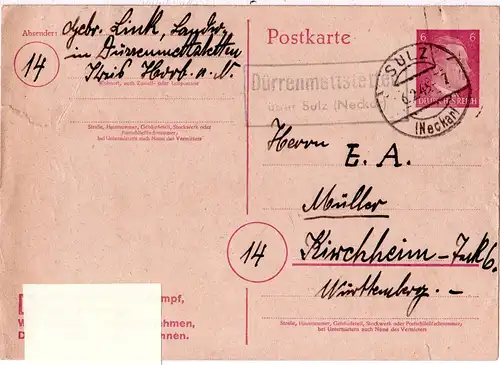 Absender: Gebr. Link, Landw.
in Dürrenmettstetten
Kreis Horb a. N.
14
Wohnort, auch Zustell- oder Leitpostamt
Straße, Hausnummer, Gebäudeteil, Stockwerk oder
Postschließfachnummer,
bei Untermietern auch Name des Vermieters
Postkarte
6 6
DEUTSCHES REICH
SULZ
(Neckar)
Dürrenmettstetten
über Sulz (Neckar)
Herrn
E. A.
Müller
14
Kirchheim-Teck
Württemberg. -
Straße, Hausnummer, Gebäudeteil, Stockwerk oder Postschließfachnummer,
bei Untermietern auch Name des Vermieters
mpf,
W hmen,
D nnen.